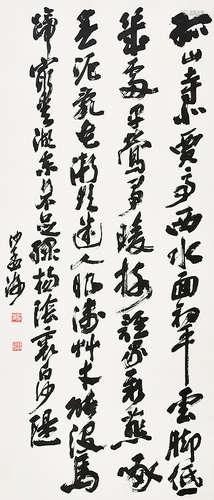 孤山寺北賈亭西水面初平雲脚低
幾處早鶯爭暖樹誰家新燕啄
春泥亂花漸欲迷人眼淺艸才能沒馬
蹄最愛湖東行不足綠楊陰裏白沙隄
沙孟海